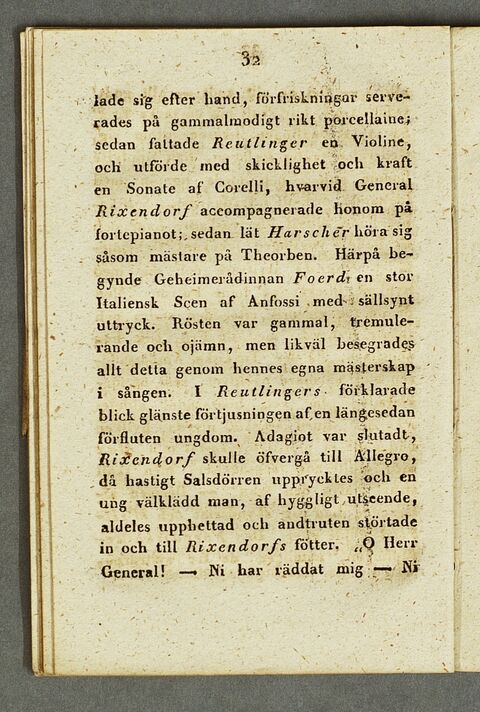 32
lade sig efter hand, förfriskningar serve-
rades på gammalmodigt rikt porcellaine;
sedan fattade Reutlinger en Violine,
och utförde med skicklighet och kraft
en Sonate af Corelli, hvarvid General
Rixendorf accompagnerade honom på
fortepianot; sedan lät Harscher höra sig
såsom mästare på Theorben. Härpå be-
gynde Geheimerådinnan Foerd en stor
Italiensk Scen af Anfossi med sällsynt
uttryck. Rösten var gammal, tremule-
rande och ojämn, men likväl besegrades
allt detta genom hennes egna mästerskap
i sången. I Reutlingers förklarade
blick glänste förtjusningen af en längesedan
förfluten ungdom. Adagiot var slutadt,
Rixendorf skulle öfvergå till Allegro,
då hastigt Salsdörren upprycktes och en
ung välklädd man, af hyggligt utseende,
aldeles upphettad och andtruten störtade
in och till Rixendorfs fötter. „O Herr
General! — Ni har räddat mig — Ni